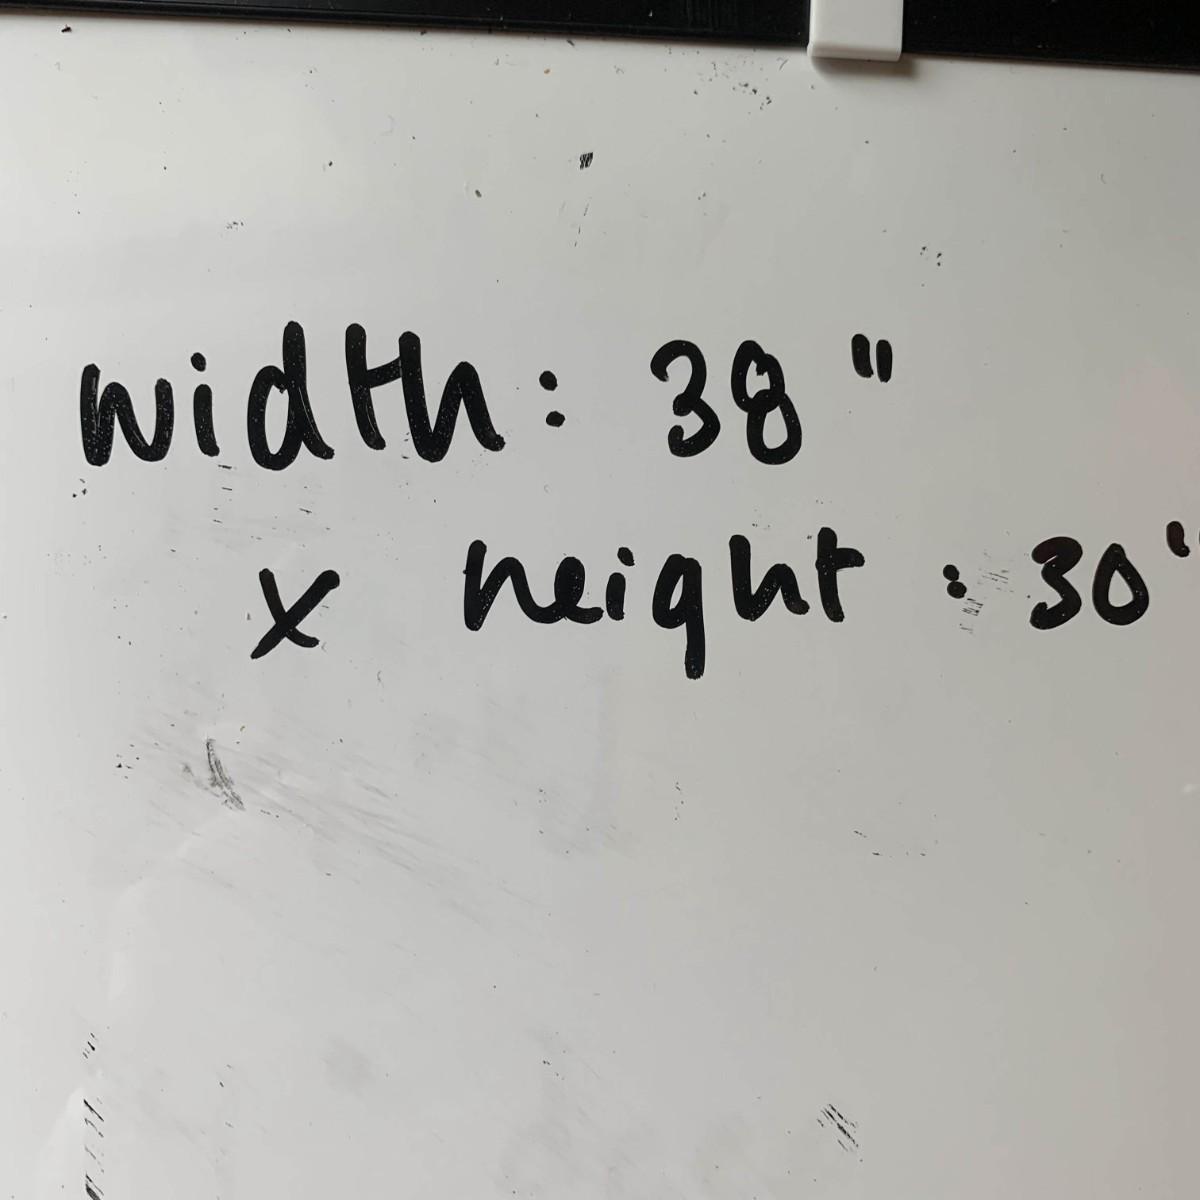 width: 38"
x height: 30"